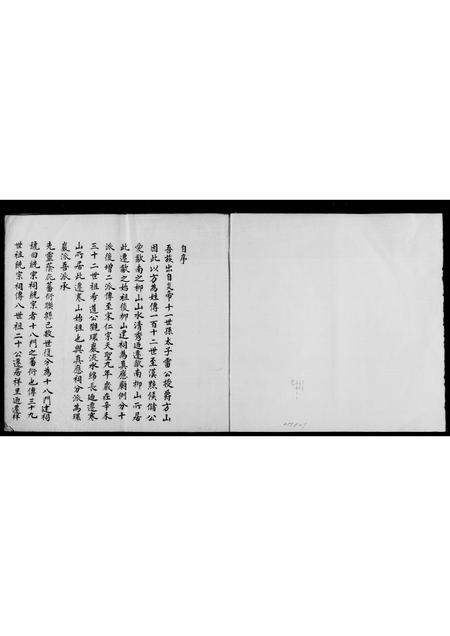 自序
吾族出自炎帝十一世孫太子雷公授爵方山
因此以方為姓傳一百十二世至漢黟侯儲公
愛歙南之柳山山水清秀迨遷歙南柳山所居
此遷歙之始祖後柳山建祠為真應廟例分十
派後增二派傳至宋仁宗天聖九年歲在辛未
三十二世祖希道公觀環巖流水綿長迨遷寒
山所居此遷寒山始祖也與真應祠分派為環
巖派吾派承
先靈蔭庇蕃衍聯縣已數世復分為十八門建祠
號曰統宗祠統宗者十八門之蕃衍也傳三十九
世祖統宗祠傳八世祖二十公遷居祥里迨遷祥